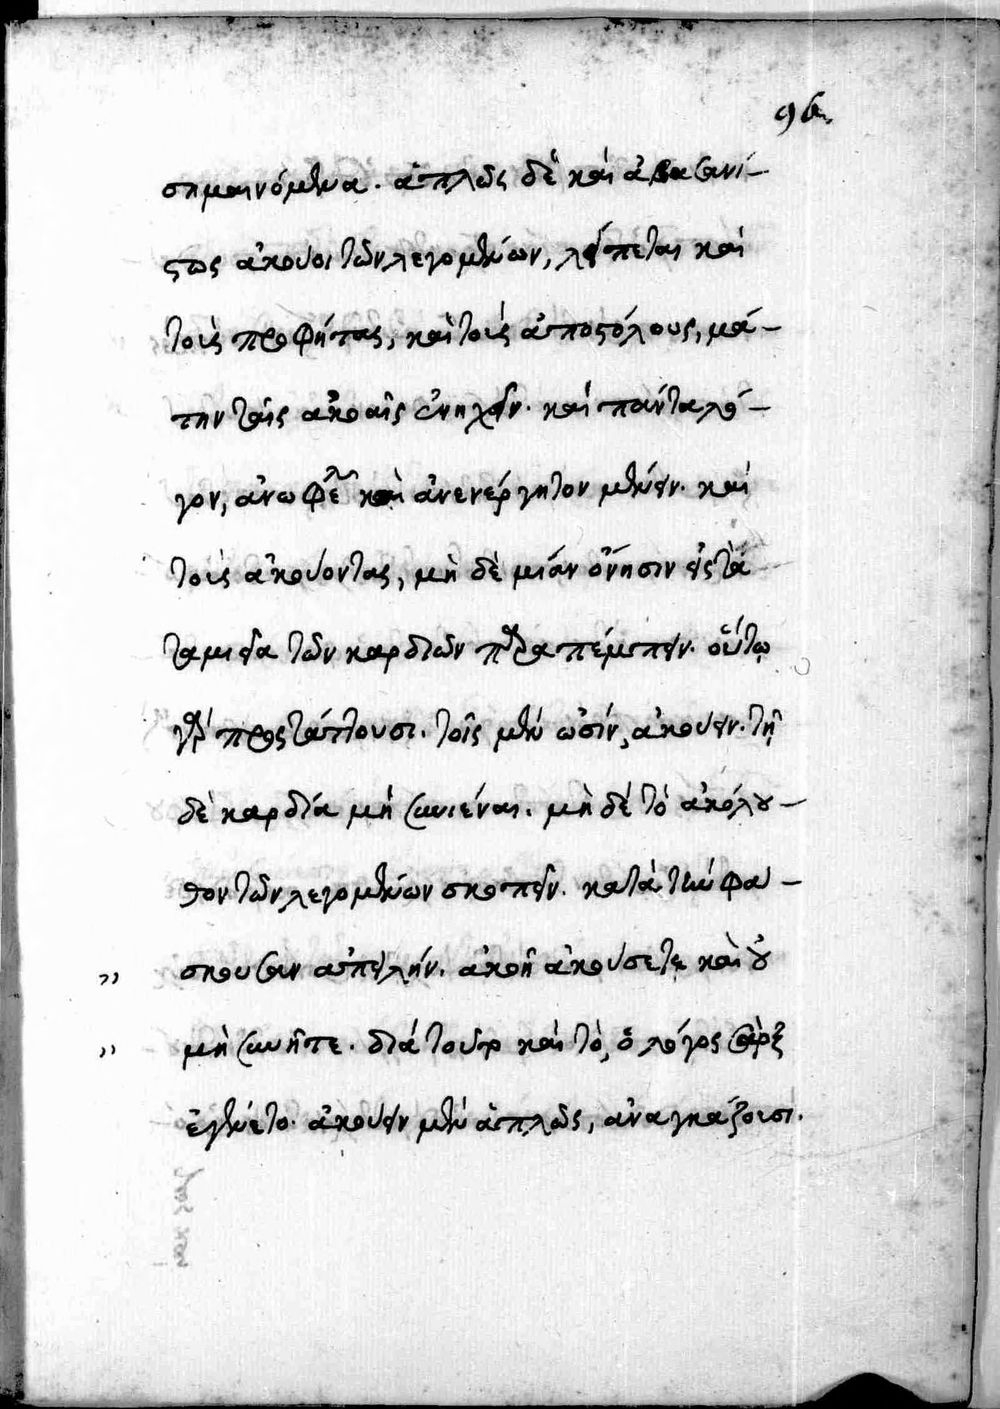 96.
σημαινόμενα. ἁπλῶς δὲ καὶ ἀβασανί-
στως ἀκούοι τῶν λεγομένων, λείπεται καὶ
τοὺς προφήτας, καὶ τοὺς ἀποστόλους, μά-
την ταῖς ἀκοαῖς ἐνηχεῖν. καὶ πάντα λό-
γον, ἀνωφελῆ καὶ ἀνενέργητον μένειν. καὶ
τοὺς ἀκούοντας, μὴ δὲ μιᾶν ὄνησιν εἰς τὰ
ταμιεῖα τῶν καρδιῶν παραπέμπειν. οὕτω
γὰρ προστάττουσι. τοῖς μὲν ὠσίν, ἀκούειν. τῇ
δὲ καρδία μὴ συνιέναι. μὴ δὲ τὸ ἀκόλου-
θον τῶν λεγομένων σκοπεῖν. κατὰ τὴν φά-
" σκουσαν ἀπειλήν. ἀκοῇ ἀκούσετε καὶ οὐ
" μὴ συνῆτε. διὰ τοῦτο καὶ τὸ, ὁ λόγος σὰρξ
ἐγένετο. ἀκούειν μὲν ἁπλῶς, ἀναγκάζουσι.